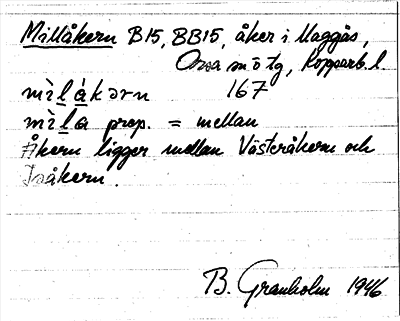 Millåkern B15, BB15, åker i Maggås,
Orsa sn o tg, Kopparb. l.
mìlákərn 167
mìla prep. = mellan
Åkern ligger mellan Västeråkern och
Isåkern.
B. Granholm 1946